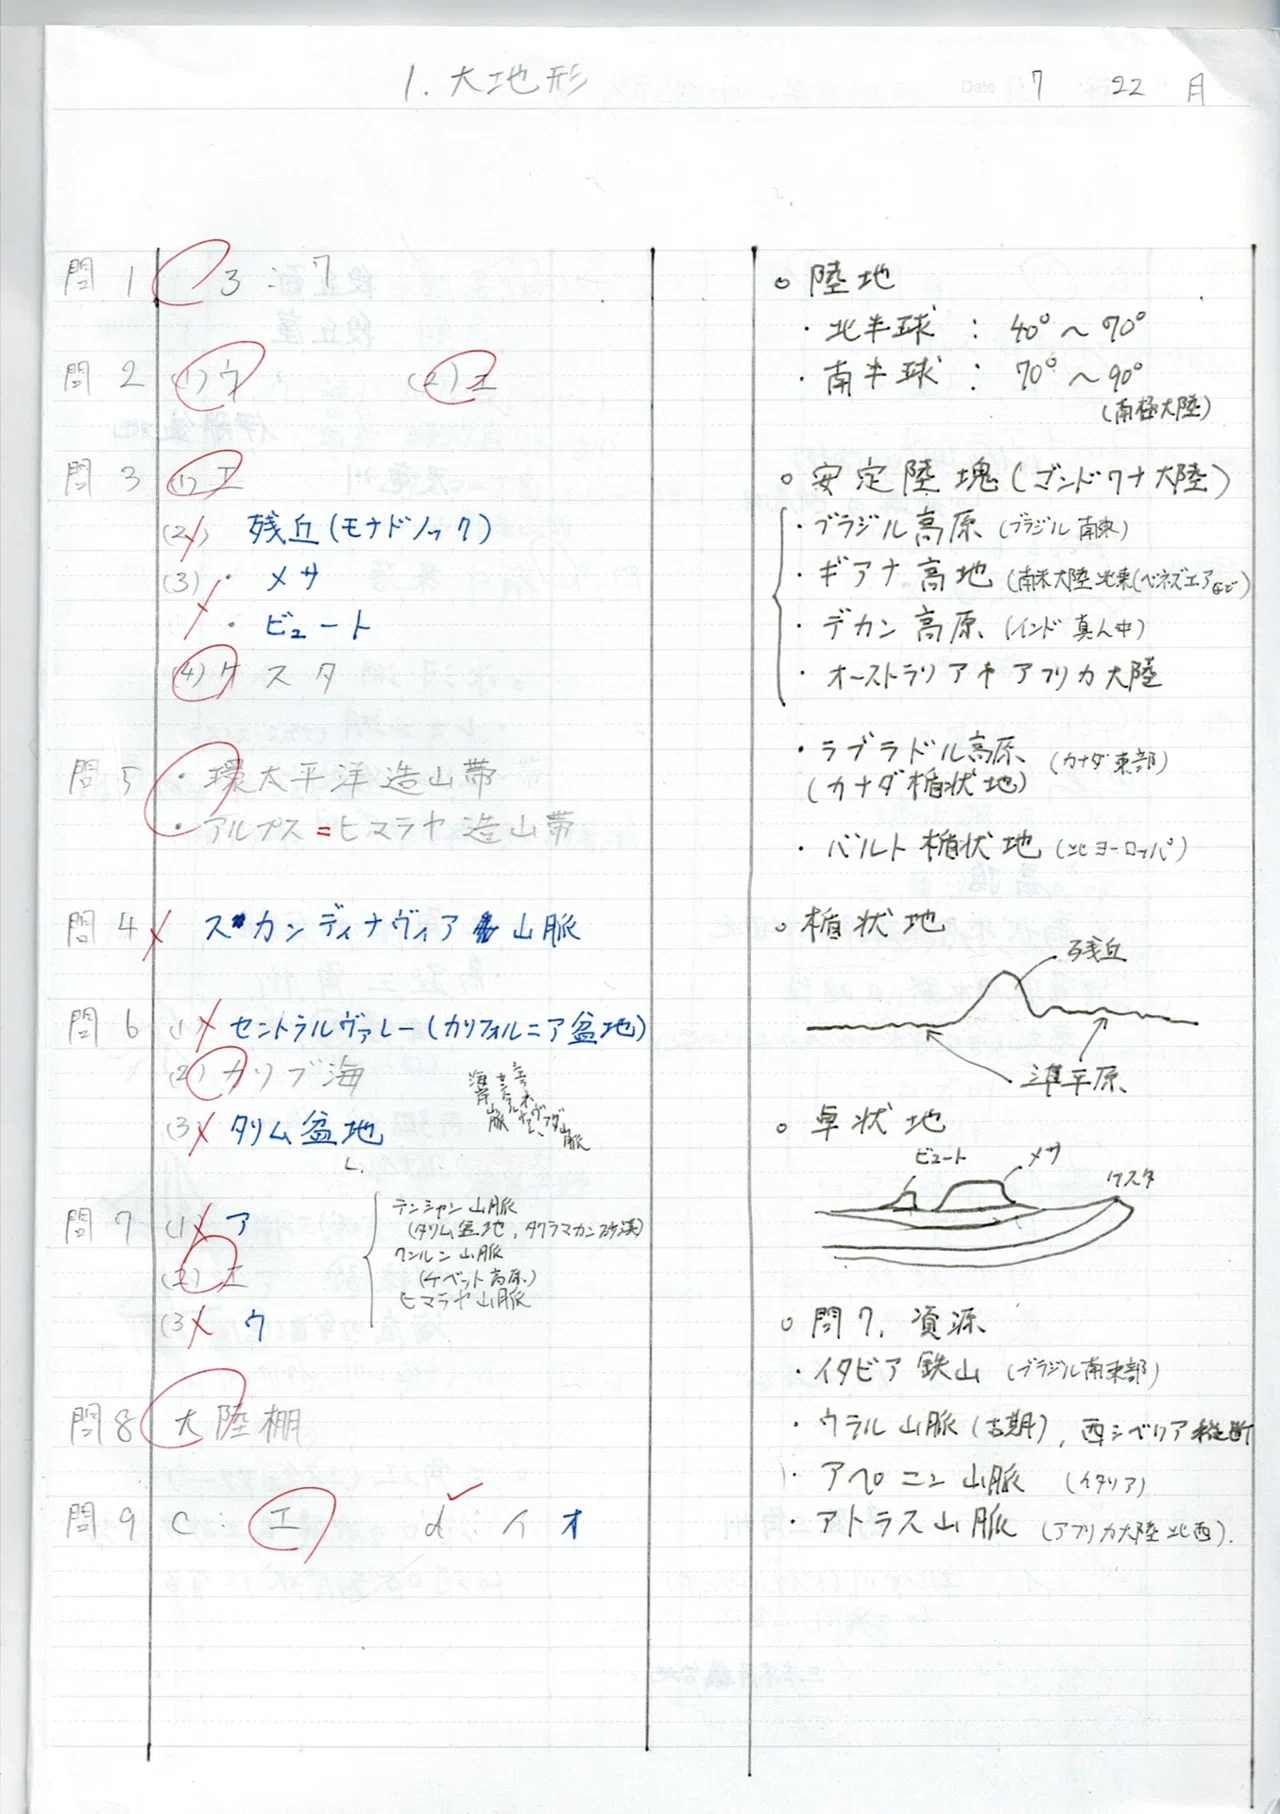 1. 大地形
Date 7 22 月
問1 3:7
問2 (1)ウ (2)エ
問3 (1)エ
(2) 残丘(モナドノック)
(3)・メサ
・ビュート
(4)ケスタ
問5 ・環太平洋造山帯
・アルプス=ヒマラヤ造山帯
問4 スカンディナヴィア山脈
問6 (1) セントラルヴァレー(カリフォルニア盆地)
(2)カリブ海
(3) タリム盆地
海岸山脈
セントラル
シエラネヴァダ山脈
問7 (1) ア
(2)エ
(3) ウ
テンシャン山脈
(タリム盆地, タクラマカン砂漠)
クンルン山脈
(チベット高原)
ヒマラヤ山脈
問8 大陸棚
問9 C:エ d イ オ
○ 陸地
・北半球 : 40°～70°
・南半球 : 70°～90°
(南極大陸)
○ 安定陸塊(ゴンドワナ大陸)
・ブラジル高原(ブラジル南東)
・ギアナ高地(南米大陸北東(ベネズエアなど)
・デカン高原(インド真ん中)
・オーストラリアやアフリカ大陸
・ラブラドル高原(カナダ東部)
(カナダ楯状地)
・バルト楯状地(北ヨーロッパ)
○ 楯状地
残丘
準平原
○ 卓状地
ビュート メサ ケスタ
○ 問7. 資源
・イタビア鉄山(ブラジル南東部)
・ウラル山脈(古期), 西シベリア縦断
・アペニン山脈(イタリア)
・アトラス山脈(アフリカ大陸北西).